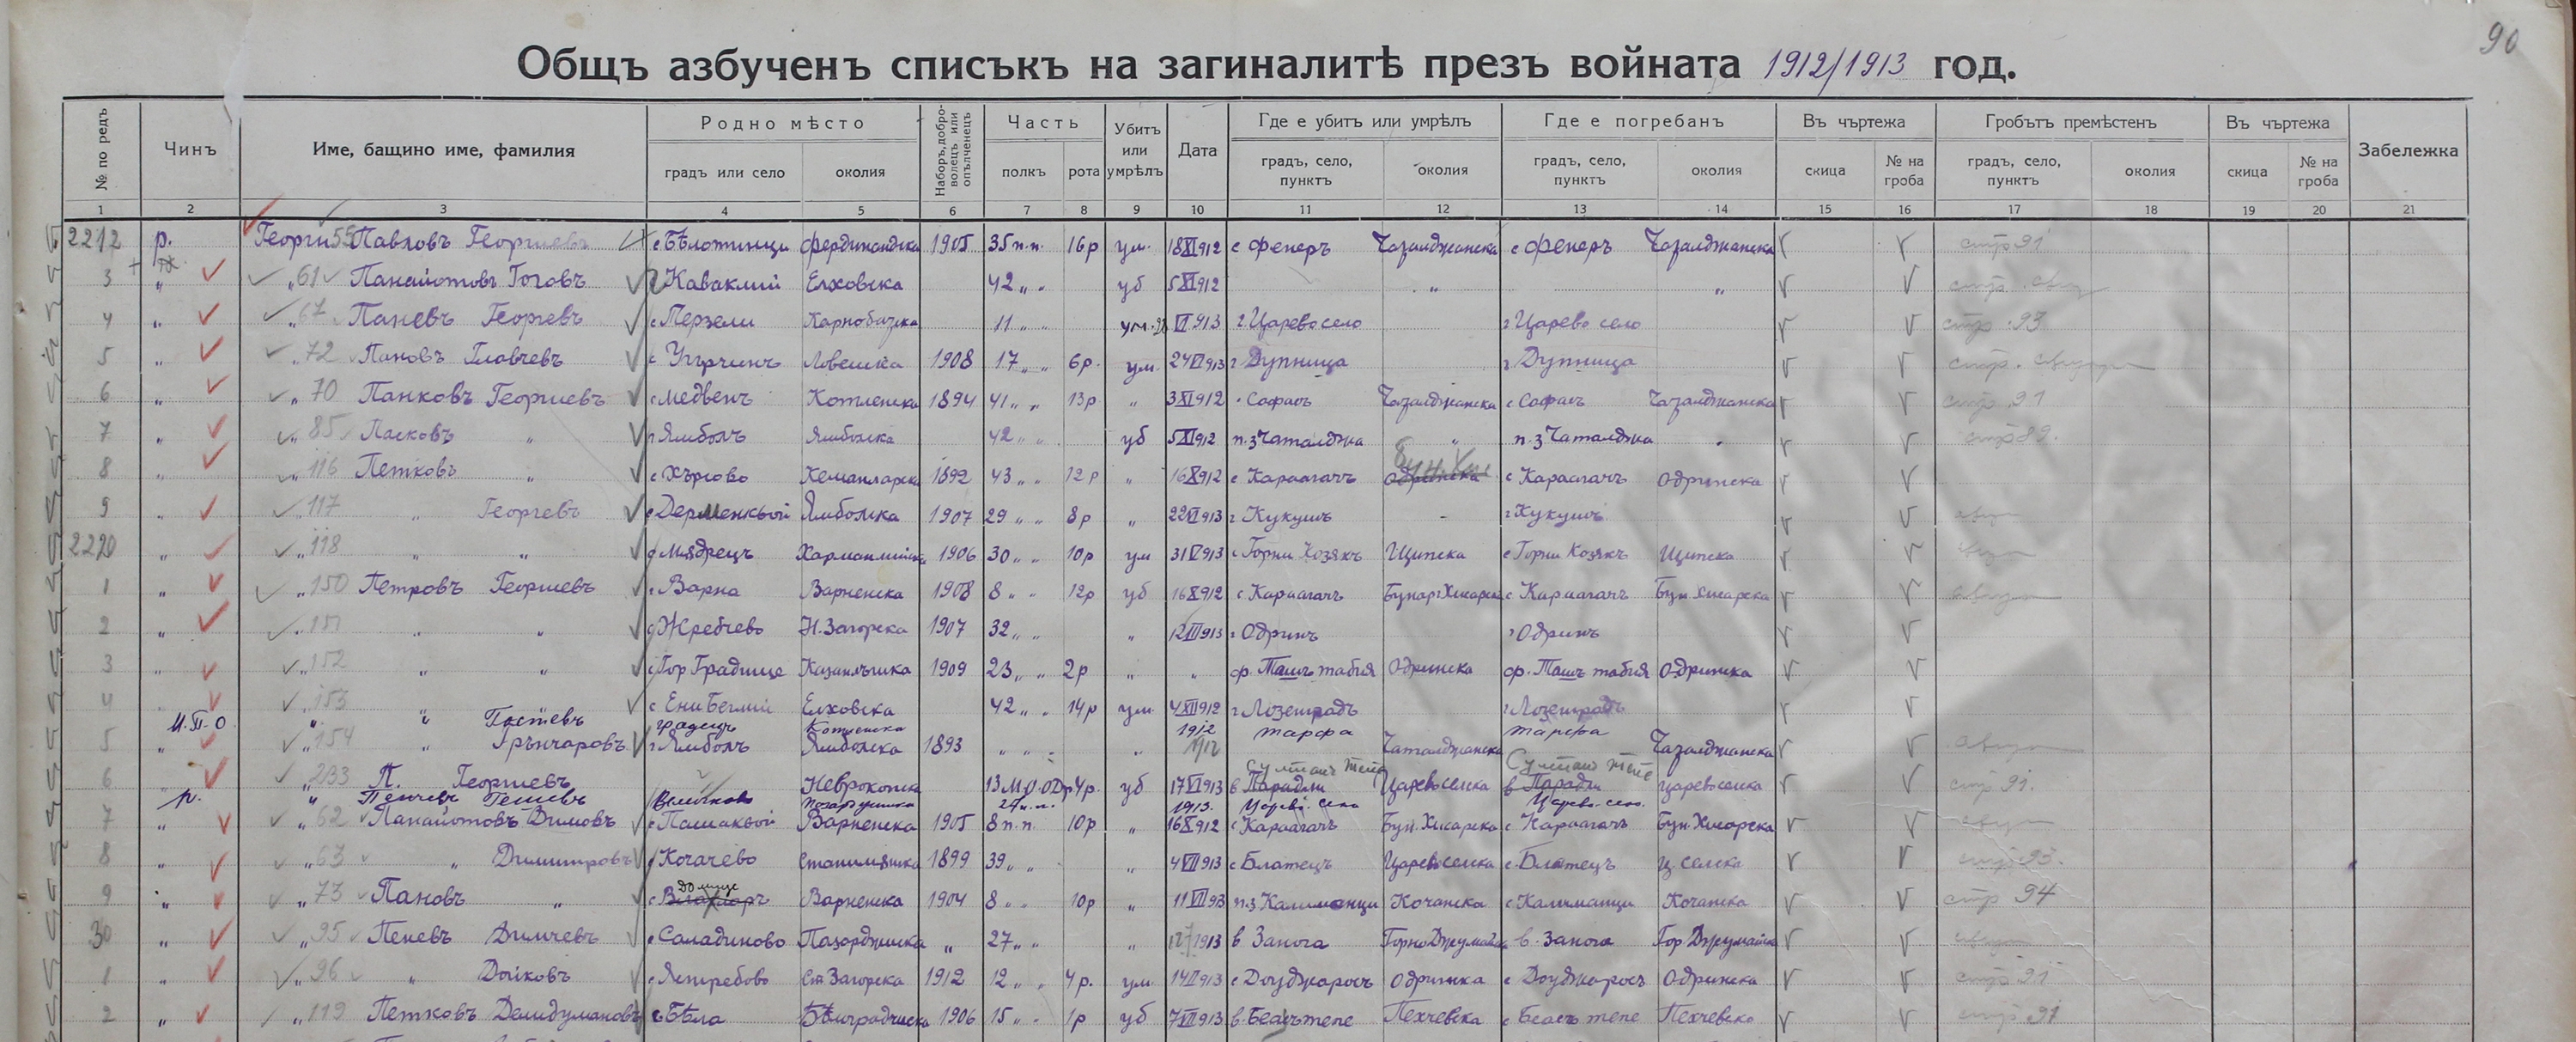 90
Общъ азбученъ списъкъ на загиналитѣ презъ войната 1912/1913 год.
№ по редъ Чинъ Име, бащино име, фамилия Родно мѣсто Наборъ, доброволецъ или опълченецъ Часть Убитъ или умрѣлъ Дата Где е убитъ или умрѣлъ Где е погребанъ Въ чъртежа Гробътъ премѣстенъ Въ чъртежа Забележка
градъ или село околия полкъ рота градъ, село, пунктъ околия градъ, село, пунктъ околия скица № на гроба градъ, село, пунктъ околия скица № на гроба
1 2 3 4 5 6 7 8 9 10 11 12 13 14 15 16 17 18 19 20 21
2212 р. Георги 55 Павловъ Георгиевъ с. Бѣлотинци Фердинандска 1905 35 п.п. 16 р ум. 18 XI 912 с Фенеръ Чаталджанска с Фенеръ Чаталджанска стр 91
3 " " 61 Панайотовъ Гоговъ Каваклий Елховска 42 " " уб 5 XI 912 " "
4 " " 67 Паневъ Георгевъ с Терзели Карнобатска 11 " " ум. VI 913 г. Царево село г Царево село стр. 93
5 " " 72 Пановъ Главчевъ с Угърчинъ Ловешка 1908 17 " " 6 р. ум. 24 VI 913 г. Дупница г Дупница
6 " " 70 Панковъ Георгиевъ с Медвенъ Котленска 1894 41 " " 13 р " 3 XI 912 с Софасъ Чаталджанска с Софасъ Чаталджанска стр. 91
7 " " 85 Пасковъ " г Ямболъ Ямболска 42 " " уб 5 XI 912 п. з Чаталджа " п. з Чаталджа " стр 89.
8 " " 116 Петковъ " с Хърсово Кеманларска 1892 43 " " 12 р " 16 X 912 с Караагачъ Одринска с Караагачъ Одринска
9 " " 117 " Георгевъ с Дерменкьой Ямболска 1907 29 " " 8 р " 22 VI 913 г Кукушъ - г Кукушъ
2220 " " 118 " " с Мядрецъ Харманлийска 1906 30 " " 10 р ум 31 V 913 с Горни Козякъ Щипска с Горни Козякъ Щипска
1 " " 150 Петровъ Георгиевъ г Варна Варненска 1908 8 " " 12 р уб 16 X 912 с Караагачъ Бунар Хисарска с Караагачъ Бун Хисарска
2 " " 151 " " с Жребчево Н. Загорска 1907 32 " " " 12 III 913 г Одринъ г Одринъ
3 " " 152 " " с Гор Градище Казанлъшка 1909 23 " " 2 р " " ф. Ташъ табия Одринска ф. Ташъ табия Одринска
4 " " 153 " с Ени Беглий Елховска 42 " " 14 р ум 4 XII 912 г Лозенградъ г Лозенградъ
М.П.О. " " градецъ Котленска 1912 Тарфа Тарфа
5 " " 154 " Грънчаровъ г Ямболъ Ямболска 1893 " " " " 1912 Чаталджанска Чаталджанска
Султанъ тепе Султанъ тепе
6 " " 233 П. Георгиевъ Неврокопска 13 М.О.О Др 4 р. уб 17 VI 913 в Парадли Царевоселска в Парадли царевоселска стр 91.
р. " Пенчевъ Пазарджишка 27 п.п. 1913. Царево-село Царево-село
7 " " 62 Панайотовъ Димовъ с Пашакьой Варненска 1905 8 п.п. 10 р " 16 X 912 с Караагачъ Бун. Хисарска с Караагачъ Бун. Хисарска
8 " " 63 " Димитровъ с Кочачево Станимашка 1899 39 " " " 4 VII 913 с Блатецъ Царевоселска с. Блатецъ ц селска стр 95.
9 " " 73 Пановъ " Варненска 1904 8 " " 10 р " 11 VII 913 п. з Калиманци Кочанска с Калиманци Кочанска стр 94
30 " " 95 Пеневъ Димчевъ с Саладиново Пазарджишка " 27 " " " 1913 в Занога Горно Джумайска в. Занога Гор. Джумайска
1 " " 96 " Дойковъ с Ястребово Ст Загорска 1912 12 " " 4 р. ум. 14 II 913 с Доуджаросъ Одринска с Доуджаросъ Одринска стр 91
2 " " 119 Петковъ Делидумановъ с Бѣла Бѣлоградчишка 1906 15 " " 1 р уб 7 VII 913 в. Беасъ тепе Пехчевска с Беасъ тепе Пехчевско стр 91